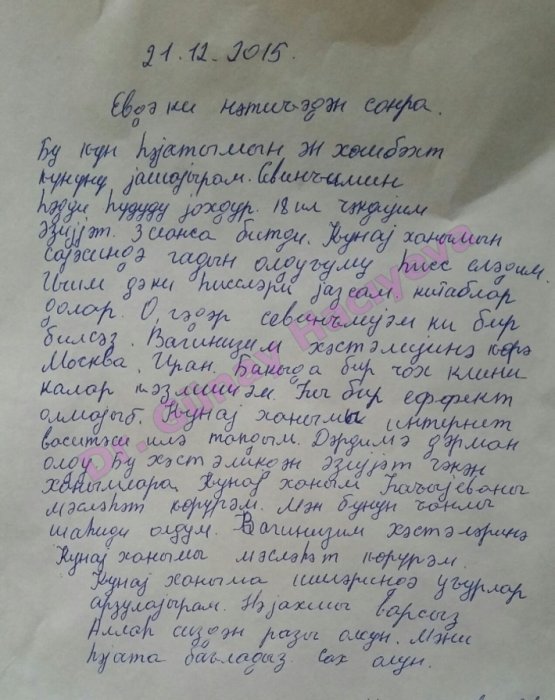 21.12.2015.
Евдә ки нәтичәдән сонра.
Бу күн һәјатымын ән хошбәхт
күнүнү јашајырам. Севинчимин
һәдди һудуду јохдур. 18 ил чәкдијим
әзијјәт. 3 сеанса битди. Күнај ханымын
сајәсиндә гадын олдуғуму һисс еләдим.
Ичим дәки һиссләри јазсам, китаблар
долар. О, гәдәр севинчлијәм ки бир
билсәз. Вагинизим хәстәлијинә көрә
Москва, Иран, Бакыда бир чох клини
калар кәзмишәм. Һеч бир еффект
олмајыб. Күнај ханымы интернет
васитәси илә тапдым. Дәрдимә дәрман
олду. Бу хәстәликдән әзијјәт чәкән
ханымлара, Күнај ханым Һачыјеваны
мәсләһәт көрүрәм. Мән бунун чанлы
шаһиди олдум. Вагинизим хәстәләринә
Күнај ханымы мәсләһәт көрүрәм.
Күнај ханыма ишләриндә уғурлар
арзулајырам. Нә јахшы варсыз
Аллаһ сиздән разы олсун. Мәни
һәјата бағладыз. Сағ олун.
Dr. Günay Hacıyeva